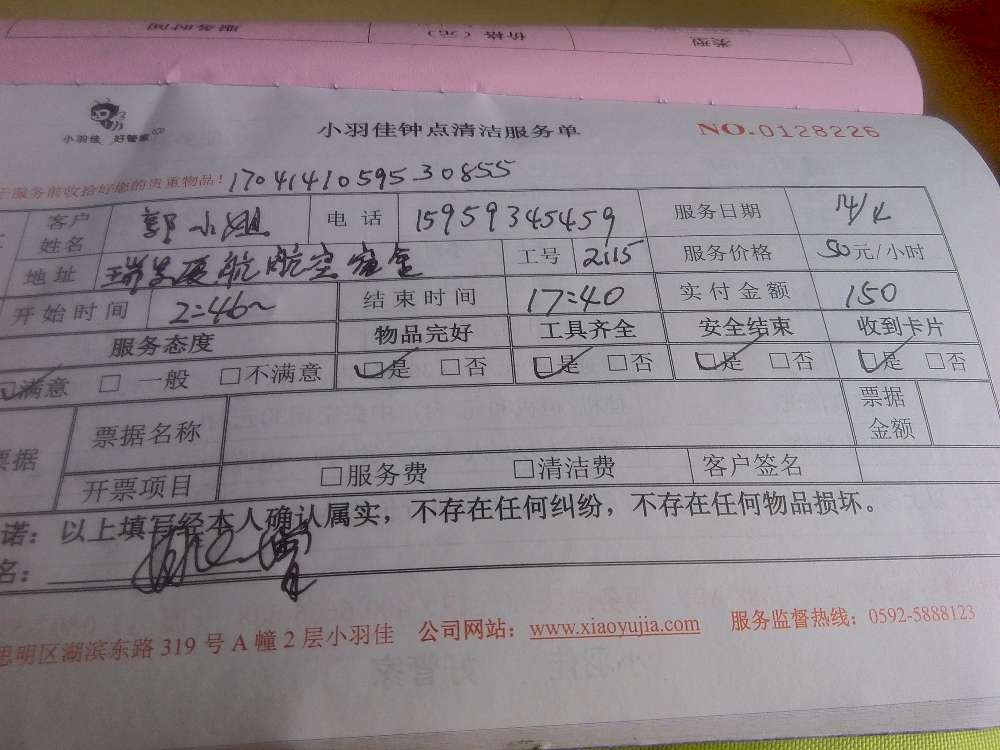 类型 价格（元） 服务时间
小羽佳 好管家 小羽佳钟点清洁服务单 NO.0128226
服务前收拾好您的贵重物品！1704141059530855
客户姓名 郭小姐 电话 15959345459 服务日期 14/4
地址 航空 工号 2115 服务价格 50元/小时
开始时间 2:46~ 结束时间 17:40 实付金额 150
服务态度 物品完好 工具齐全 安全结束 收到卡片
☑满意 □一般 □不满意 ☑是 □否 ☑是 □否 ☑是 □否 ☑是 □否
票据 票据名称 票据金额
开票项目 □服务费 □清洁费 客户签名
诺：以上填写经本人确认属实，不存在任何纠纷，不存在任何物品损坏。
名：
思明区湖滨东路319号A幢2层小羽佳 公司网站：www.xiaoyujia.com 服务监督热线：0592-5888123